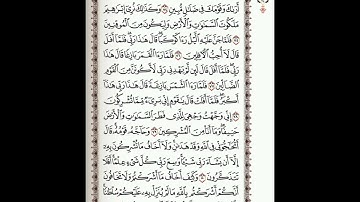 أَرَىٰكَ وَقَوْمَكَ فِى ضَلَٰلٍ مُّبِينٍ وَكَذَٰلِكَ نُرِىٓ إِبْرَٰهِيمَ
مَلَكُوتَ ٱلسَّمَٰوَٰتِ وَٱلْأَرْضِ وَلِيَكُونَ مِنَ ٱلْمُوقِنِينَ
فَلَمَّا جَنَّ عَلَيْهِ ٱلَّيْلُ رَءَا كَوْكَبًا قَالَ هَٰذَا رَبِّى فَلَمَّآ أَفَلَ
قَالَ لَآ أُحِبُّ ٱلْءَافِلِينَ فَلَمَّا رَءَا ٱلْقَمَرَ بَازِغًا قَالَ هَٰذَا
رَبِّى فَلَمَّآ أَفَلَ قَالَ لَئِن لَّمْ يَهْدِنِى رَبِّى لَأَكُونَنَّ مِنَ ٱلْقَوْمِ
ٱلضَّآلِّينَ فَلَمَّا رَءَا ٱلشَّمْسَ بَازِغَةً قَالَ هَٰذَا رَبِّى هَٰذَآ
أَكْبَرُ فَلَمَّآ أَفَلَتْ قَالَ يَٰقَوْمِ إِنِّى بَرِىٓءٌ مِّمَّا تُشْرِكُونَ
إِنِّى وَجَّهْتُ وَجْهِىَ لِلَّذِى فَطَرَ ٱلسَّمَٰوَٰتِ وَٱلْأَرْضَ
حَنِيفًا وَمَآ أَنَا۠ مِنَ ٱلْمُشْرِكِينَ وَحَآجَّهُۥ قَوْمُهُۥ قَالَ
أَتُحَٰٓجُّوٓنِّى فِى ٱللَّهِ وَقَدْ هَدَىٰنِ وَلَآ أَخَافُ مَا تُشْرِكُونَ بِهِۦٓ
إِلَّآ أَن يَشَآءَ رَبِّى شَيْـًٔا وَسِعَ رَبِّى كُلَّ شَىْءٍ عِلْمًا أَفَلَا
تَتَذَكَّرُونَ وَكَيْفَ أَخَافُ مَآ أَشْرَكْتُمْ وَلَا تَخَافُونَ
أَنَّكُمْ أَشْرَكْتُم بِٱللَّهِ مَا لَمْ يُنَزِّلْ بِهِۦ عَلَيْكُمْ سُلْطَٰنًا